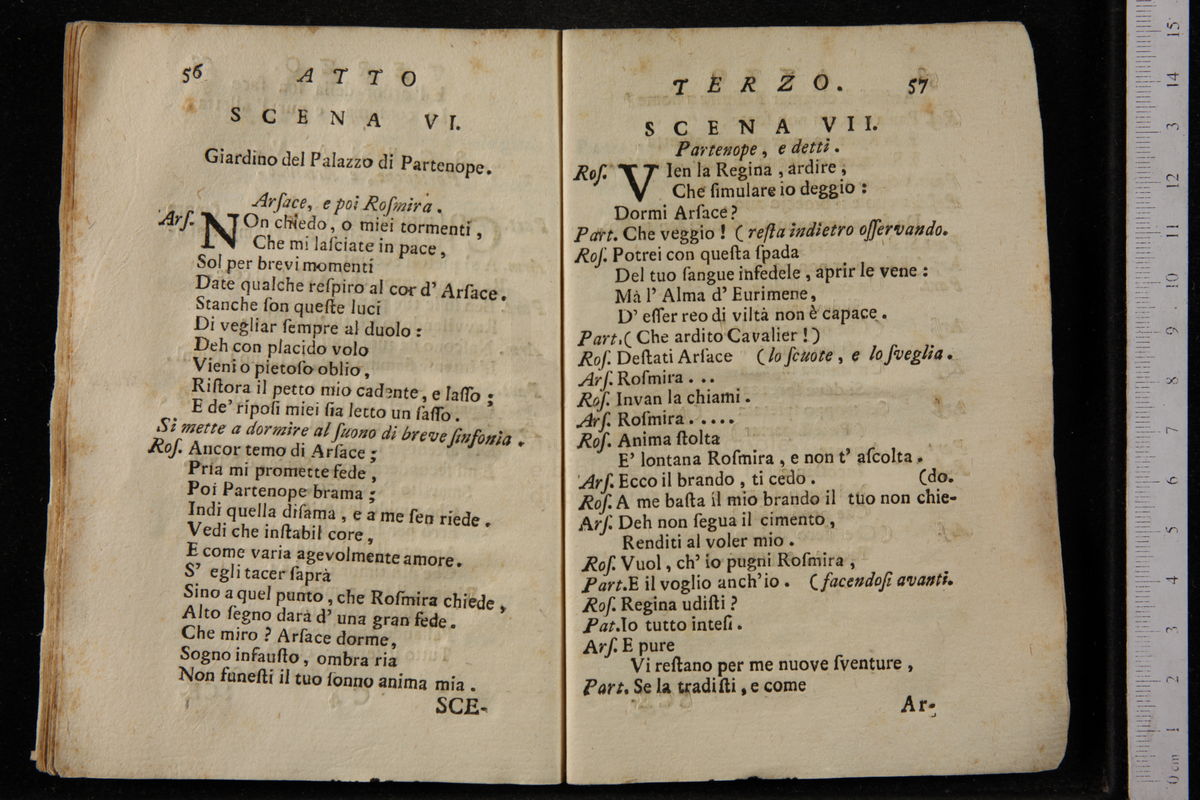 56 ATTO
SCENA VI.
Giardino del Palazzo di Partenope.
Arſace, e poi Roſmira.
Arſ. NOn chiedo, o miei tormenti,
Che mi laſciate in pace,
Sol per brevi momenti
Date qualche reſpiro al cor d' Arſace.
Stanche ſon queſte luci
Di vegliar ſempre al duolo:
Deh con placido volo
Vieni o pietoſo oblio,
Riſtora il petto mio cadente, e laſſo;
E de' ripoſi miei ſia letto un ſaſſo.
Si mette a dormire al ſuono di breve ſinfonia.
Roſ. Ancor temo di Arſace;
Pria mi promette fede,
Poi Partenope brama;
Indi quella diſama, e a me ſen riede.
Vedi che inſtabil core,
E come varia agevolmente amore.
S' egli tacer ſaprà
Sino a quel punto, che Roſmira chiede,
Alto ſegno darà d' una gran fede.
Che miro? Arſace dorme,
Sogno infauſto, ombra ria
Non funeſti il tuo ſonno anima mia.
SCE-
TERZO. 57
SCENA VII.
Partenope, e detti.
Roſ. VIen la Regina, ardire,
Che ſimulare io deggio:
Dormi Arſace?
Part. Che veggio! (reſta indietro oſſervando.
Roſ. Potrei con queſta ſpada
Del tuo ſangue infedele, aprir le vene:
Mà l' Alma d' Eurimene,
D' eſſer reo di viltà non è capace.
Part.(Che ardito Cavalier!)
Roſ. Deſtati Arſace (lo ſcuote, e lo ſveglia.
Arſ. Roſmira...
Roſ. Invan la chiami.
Arſ. Roſmira.....
Roſ. Anima ſtolta
E' lontana Roſmira, e non t' aſcolta.
Arſ. Ecco il brando, ti cedo. (do.
Roſ. A me baſta il mio brando il tuo non chie-
Arſ. Deh non ſegua il cimento,
Renditi al voler mio.
Roſ. Vuol, ch' io pugni Roſmira,
Part.E il voglio anch'io. (facendoſi avanti.
Roſ. Regina udiſti?
Pat.Io tutto inteſi.
Arſ. E pure
Vi reſtano per me nuove ſventure,
Part. Se la tradiſti, e come
Ar-
15
14
13
12
11
10
9
8
7
6
5
4
3
2
1
0 cm